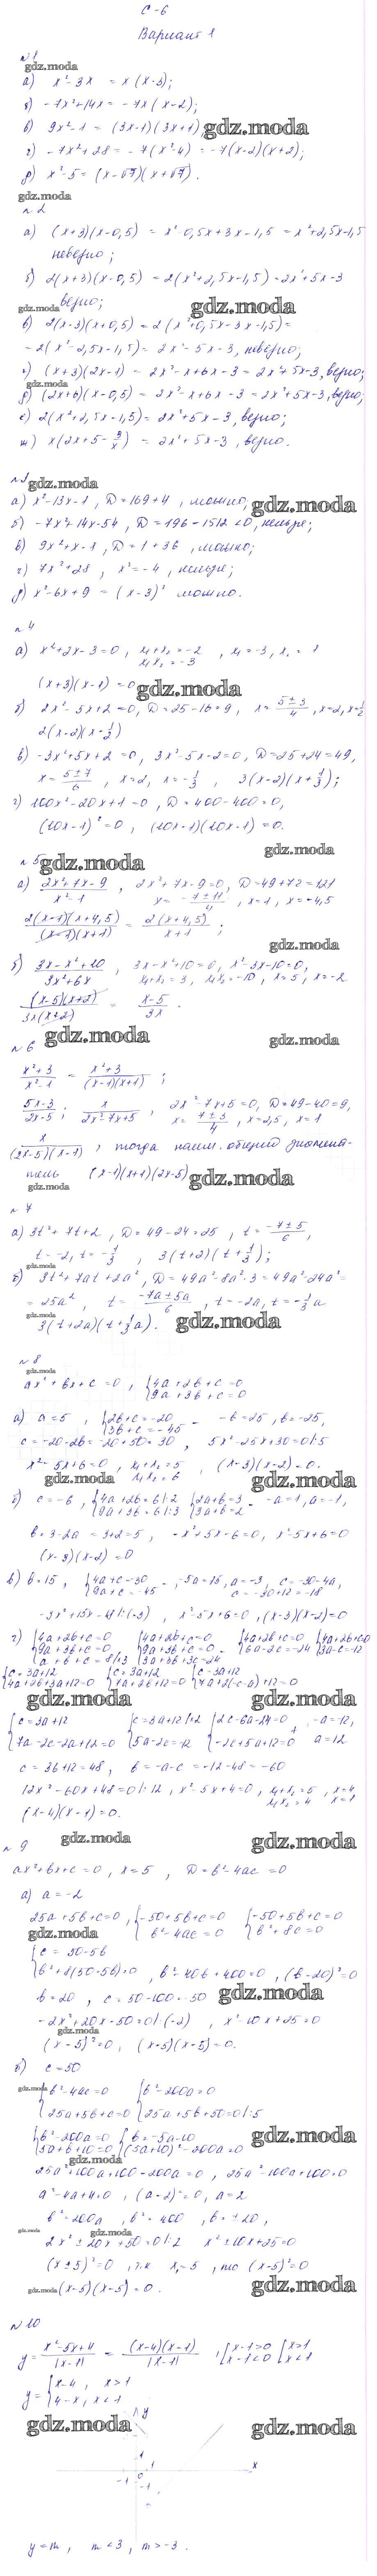 С-6
Вариант 1
№1
gdz.moda
а) x²-3x = x(x-3);
б) -7x²+14x = -7x(x-2);
в) 9x²-1 = (3x-1)(3x+1)
gdz.moda
г) -7x²+28 = -7(x²-4) = -7(x-2)(x+2);
д) x²-5 = (x-√7)(x+√7).
gdz.moda
№2
а) (x+3)(x-0,5) = x²-0,5x+3x-1,5 = x²+2,5x-1,5
неверно;
б) 2(x+3)(x-0,5) = 2(x²+2,5x-1,5)=2x²+5x-3
gdz.moda верно; gdz.moda
в) 2(x-3)(x+0,5) = 2(x²+0,5x-3x-1,5)=
=2(x²-2,5x-1,5)= 2x²-5x-3, неверно;
г) (x+3)(2x-1) = 2x²-x+6x-3=2x²+5x-3, верно;
gdz.moda
д) (2x+6)(x-0,5) = 2x²-x+6x-3=2x²+5x-3, верно;
е) 2(x²+2,5x-1,5)= 2x²+5x-3, верно;
ж) x(2x+5-3/x) = 2x²+5x-3, верно.
№3 gdz.moda
а) x²-13x-1, D=169+4, можно; gdz.moda
б) -7x²-14x-54, D=196-1512<0, нельзя;
в) 9x²+x-1, D=1+36, можно;
г) 7x²+28, x²=-4, нельзя;
д) x²-6x+9 = (x-3)² можно.
№4
а) x²+2x-3=0, x₁+x₂=-2, x₁x₂=-3, x₁=-3, x₂=1
(x+3)(x-1)=0 gdz.moda
б) 2x²-5x+2=0, D=25-16=9, x=(5±3)/4, x=2, x=1/2
2(x-2)(x-1/2)
в) -3x²+5x+2=0, 3x²-5x-2=0, D=25+24=49,
x=(5±7)/6, x=2, x=-1/3, 3(x-2)(x+1/3);
г) 100x²-20x+1=0, D=400-400=0,
(10x-1)²=0, (10x-1)(10x-1)=0.
gdz.moda
№5 gdz.moda
а) (2x²+7x-9)/(x²-1), 2x²+7x-9=0, D=49+72=121
x=(-7±11)/4, x=1, x=-4,5
2(x-1)(x+4,5)/((x-1)(x+1)) = 2(x+4,5)/(x+1);
gdz.moda
б) (3x-x²+10)/(3x²+6x), 3x-x²+10=0, x²-3x-10=0,
x₁+x₂=3, x₁x₂=-10, x=5, x=-2
(x-5)(x+2)/(3x(x+2)) = (x-5)/(3x).
gdz.moda gdz.moda
№6
(x²+3)/(x²-1) = (x²+3)/((x-1)(x+1));
(5x-3)/(2x-5); x/(2x²-7x+5), 2x²-7x+5=0, D=49-40=9,
x=(7±3)/4, x=2,5, x=1
x/((2x-5)(x-1)), тогда наим. общий знамена-
тель (x-1)(x+1)(2x-5)
gdz.moda gdz.moda
№7
а) 3t²+7t+2, D=49-24=25, t=(-7±5)/6,
t=-2, t=-1/3, 3(t+2)(t+1/3);
gdz.moda
б) 3t²+7at+2a², D=49a²-8a²·3=49a²-24a²=
=25a², t=(-7a±5a)/6, t=-2a, t=-1/3a
3(t+2a)(t+1/3a). gdz.moda
№8
gdz.moda
ax²+bx+c=0, {4a+2b+c=0 {9a+3b+c=0
а) a=5, {2b+c=-20 {3b+c=-45 -b=25, b=-25,
c=-20-2b=-20+50=30, 5x²-25x+30=0|:5
x²-5x+6=0, x₁+x₂=5, x₁x₂=6, (x-3)(x-2)=0.
gdz.moda gdz.moda
б) c=-6, {4a+2b=6|:2 {9a+3b=6|:3 {2a+b=3 {3a+b=2 -a=1, a=-1,
b=3-2a=3+2=5, -x²+5x-6=0, x²-5x+6=0
(x-3)(x-2)=0
в) b=15, {4a+c=-30 {9a+c=-45, -5a=15, a=-3, c=-30-4a,
c=-30+12=-18
x²-5x+6=0, (x-3)(x-2)=0
gdz.moda gdz.moda
c=36+12=48, b=-a-c=-12-48=-60
12x²-60x+48=0|:12, x²-5x+4=0, x₁+x₂=5, x₁x₂=4, x=4, x=1
(x-4)(x-1)=0.
№9 gdz.moda gdz.moda
ax²+bx+c=0, x=5, D=b²-4ac=0
а) a=-2
25a+5b+c=0, {-50+5b+c=0 {b²-4ac=0 {-50+5b+c=0 {b²+8c=0
gdz.moda
{c=50-5b
{b²+8(50-5b)=0, b²-40b+400=0, (b-20)²=0
b=20, c=50-100=-50 gdz.moda
-2x²+20x-50=0|:(-2), x²-10x+25=0
gdz.moda
(x-5)²=0, (x-5)(x-5)=0.
б) c=50
gdz.moda
{b²-4ac=0 {25a+5b+c=0 {b²-200a=0 {25a+5b+50=0|:5
{b²-200a=0 {5a+b+10=0 {b=-5a-10 {(5a+10)²-200a=0
gdz.moda gdz.moda
25a²+100a+100-200a=0, 25a²-100a+100=0
a²-4a+4=0, (a-2)²=0, a=2
b²=200a, b²=400, b=±20,
gdz.moda gdz.moda
2x²±20x+50=0|:2 x²±10x+25=0
(x±5)²=0, т.к x=5, то (x-5)²=0
gdz.moda (x-5)(x-5)=0. gdz.moda
№10
y=(x²-5x+4)/|x-1| = (x-4)(x-1)/|x-1|, [x-1>0 [x-1<0 [x>1 [x<1
y={x-4, x>1 {4-x, x<1
gdz.moda gdz.moda
y
1
-1 0 1 x
-1
y=m, m<3, m>-3.